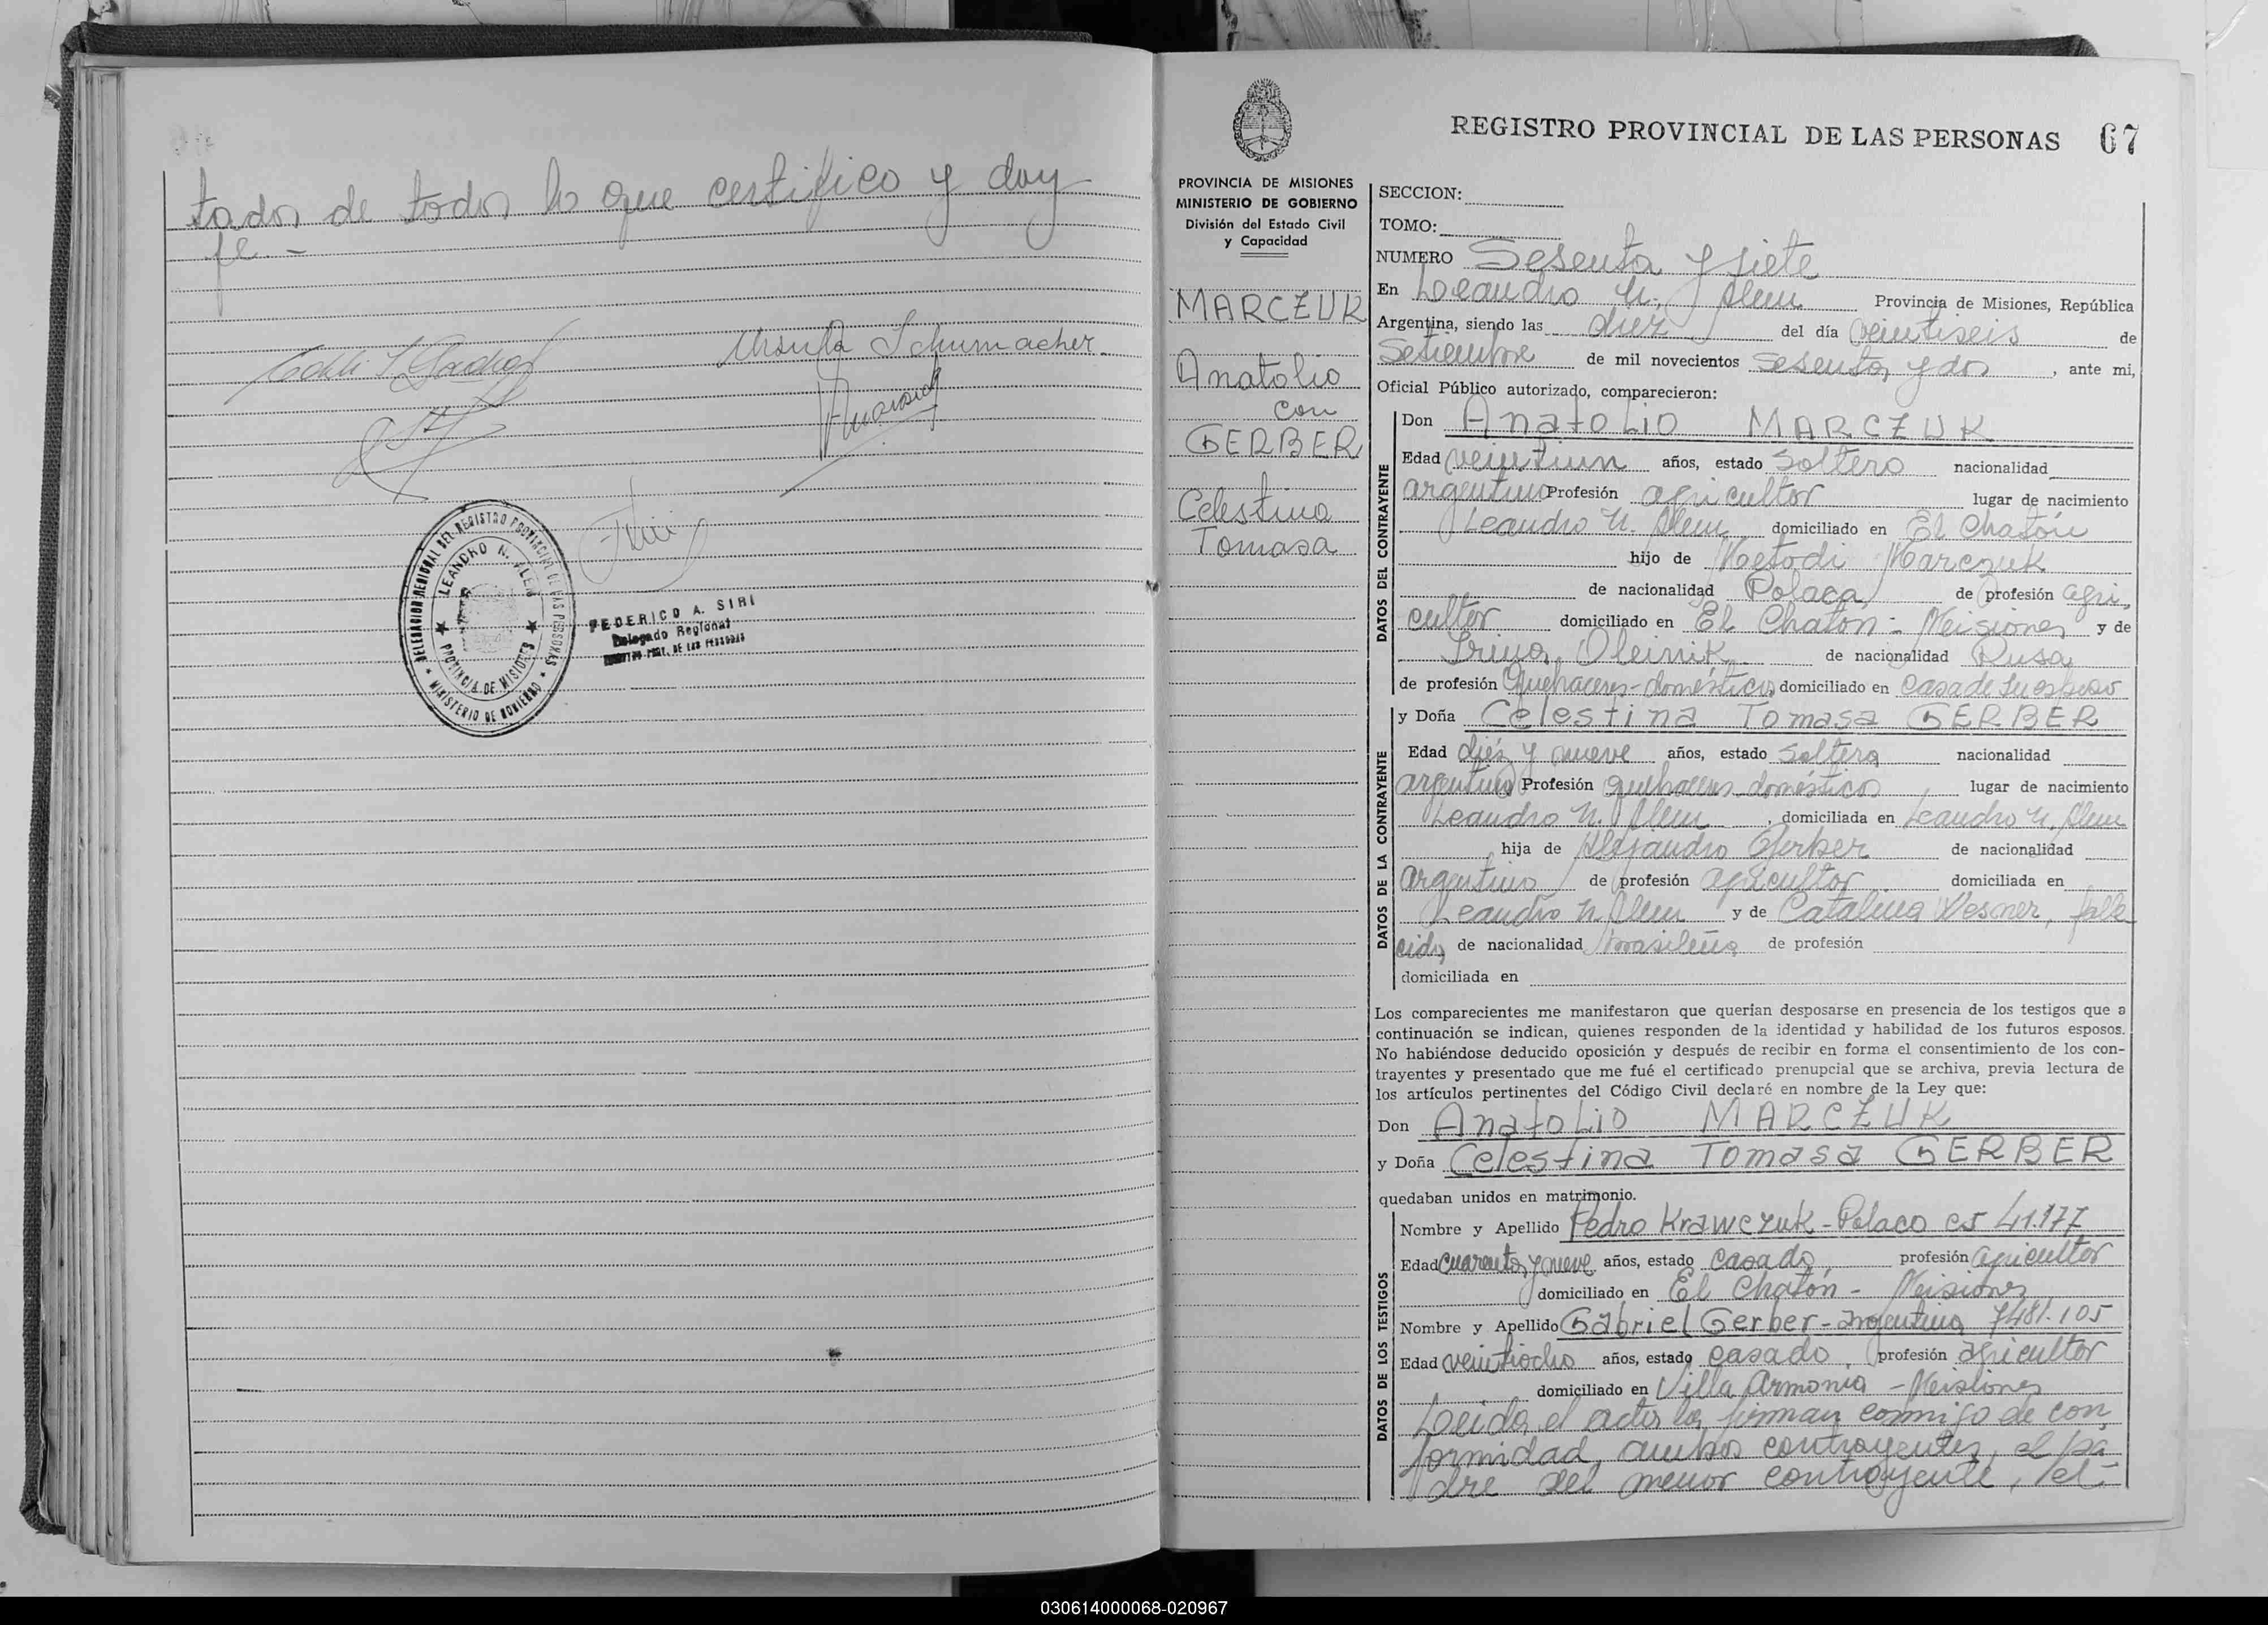 tados de todos lo que certifico y doy
fe. -
Ursula Schumacher
DELEGACION REGIONAL DEL REGISTRO PROVINCIAL DE LAS PERSONAS
LEANDRO N. ALEM
PROVINCIA DE MISIONES
MINISTERIO DE GOBIERNO
FEDERICO A. SIRI
Delegado Regional
REGISTRO PROV. DE LAS PERSONAS
REGISTRO PROVINCIAL DE LAS PERSONAS 67
PROVINCIA DE MISIONES
MINISTERIO DE GOBIERNO
División del Estado Civil
y Capacidad
MARCZUK
Anatolio
con
GERBER
Celestina
Tomasa
SECCION:
TOMO:
NUMERO Sesenta y siete
En Leandro N. Alem Provincia de Misiones, República
Argentina, siendo las diez del día veintiseis de
Setiembre de mil novecientos sesenta y dos, ante mi,
Oficial Público autorizado, comparecieron:
DATOS DEL CONTRAYENTE
Don Anatolio MARCZUK
Edad veintiun años, estado soltero nacionalidad
argentino Profesión agricultor lugar de nacimiento
Leandro N. Alem domiciliado en El Chatón
hijo de Metodi Marczuk
de nacionalidad Polaca de profesión agri
cultor domiciliado en El Chatón - Misiones y de
Irina Oleinik de nacionalidad Rusa
de profesión Quehaceres-domésticos domiciliado en casa de su esposo
DATOS DE LA CONTRAYENTE
y Doña Celestina Tomasa GERBER
Edad diéz y nueve años, estado soltera nacionalidad
argentina Profesión quehaceres domésticos lugar de nacimiento
Leandro N. Alem, domiciliada en Leandro N. Alem
hija de Alejandro Gerber de nacionalidad
argentino de profesión agricultor domiciliada en
Leandro N. Alem y de Catalina Wesner, falle
cida de nacionalidad brasileña de profesión
domiciliada en
Los comparecientes me manifestaron que querían desposarse en presencia de los testigos que a
continuación se indican, quienes responden de la identidad y habilidad de los futuros esposos.
No habiéndose deducido oposición y después de recibir en forma el consentimiento de los con-
trayentes y presentado que me fué el certificado prenupcial que se archiva, previa lectura de
los artículos pertinentes del Código Civil declaré en nombre de la Ley que:
Don Anatolio MARCZUK
y Doña Celestina Tomasa GERBER
quedaban unidos en matrimonio.
DATOS DE LOS TESTIGOS
Nombre y Apellido Pedro Krawczuk - Polaco 41.177
Edad cuarenta y nueve años, estado casado, profesión agricultor
domiciliado en El Chatón - Misiones
Nombre y Apellido Gabriel Gerber - argentino 7481.105
Edad veintiocho años, estado casado, profesión agricultor
domiciliado en Villa Armonia - Misiones
Leida el acta la firman conmigo de con
formidad, ambos contrayentes, el pa
dre del menor contrayente, el
030614000068-020967